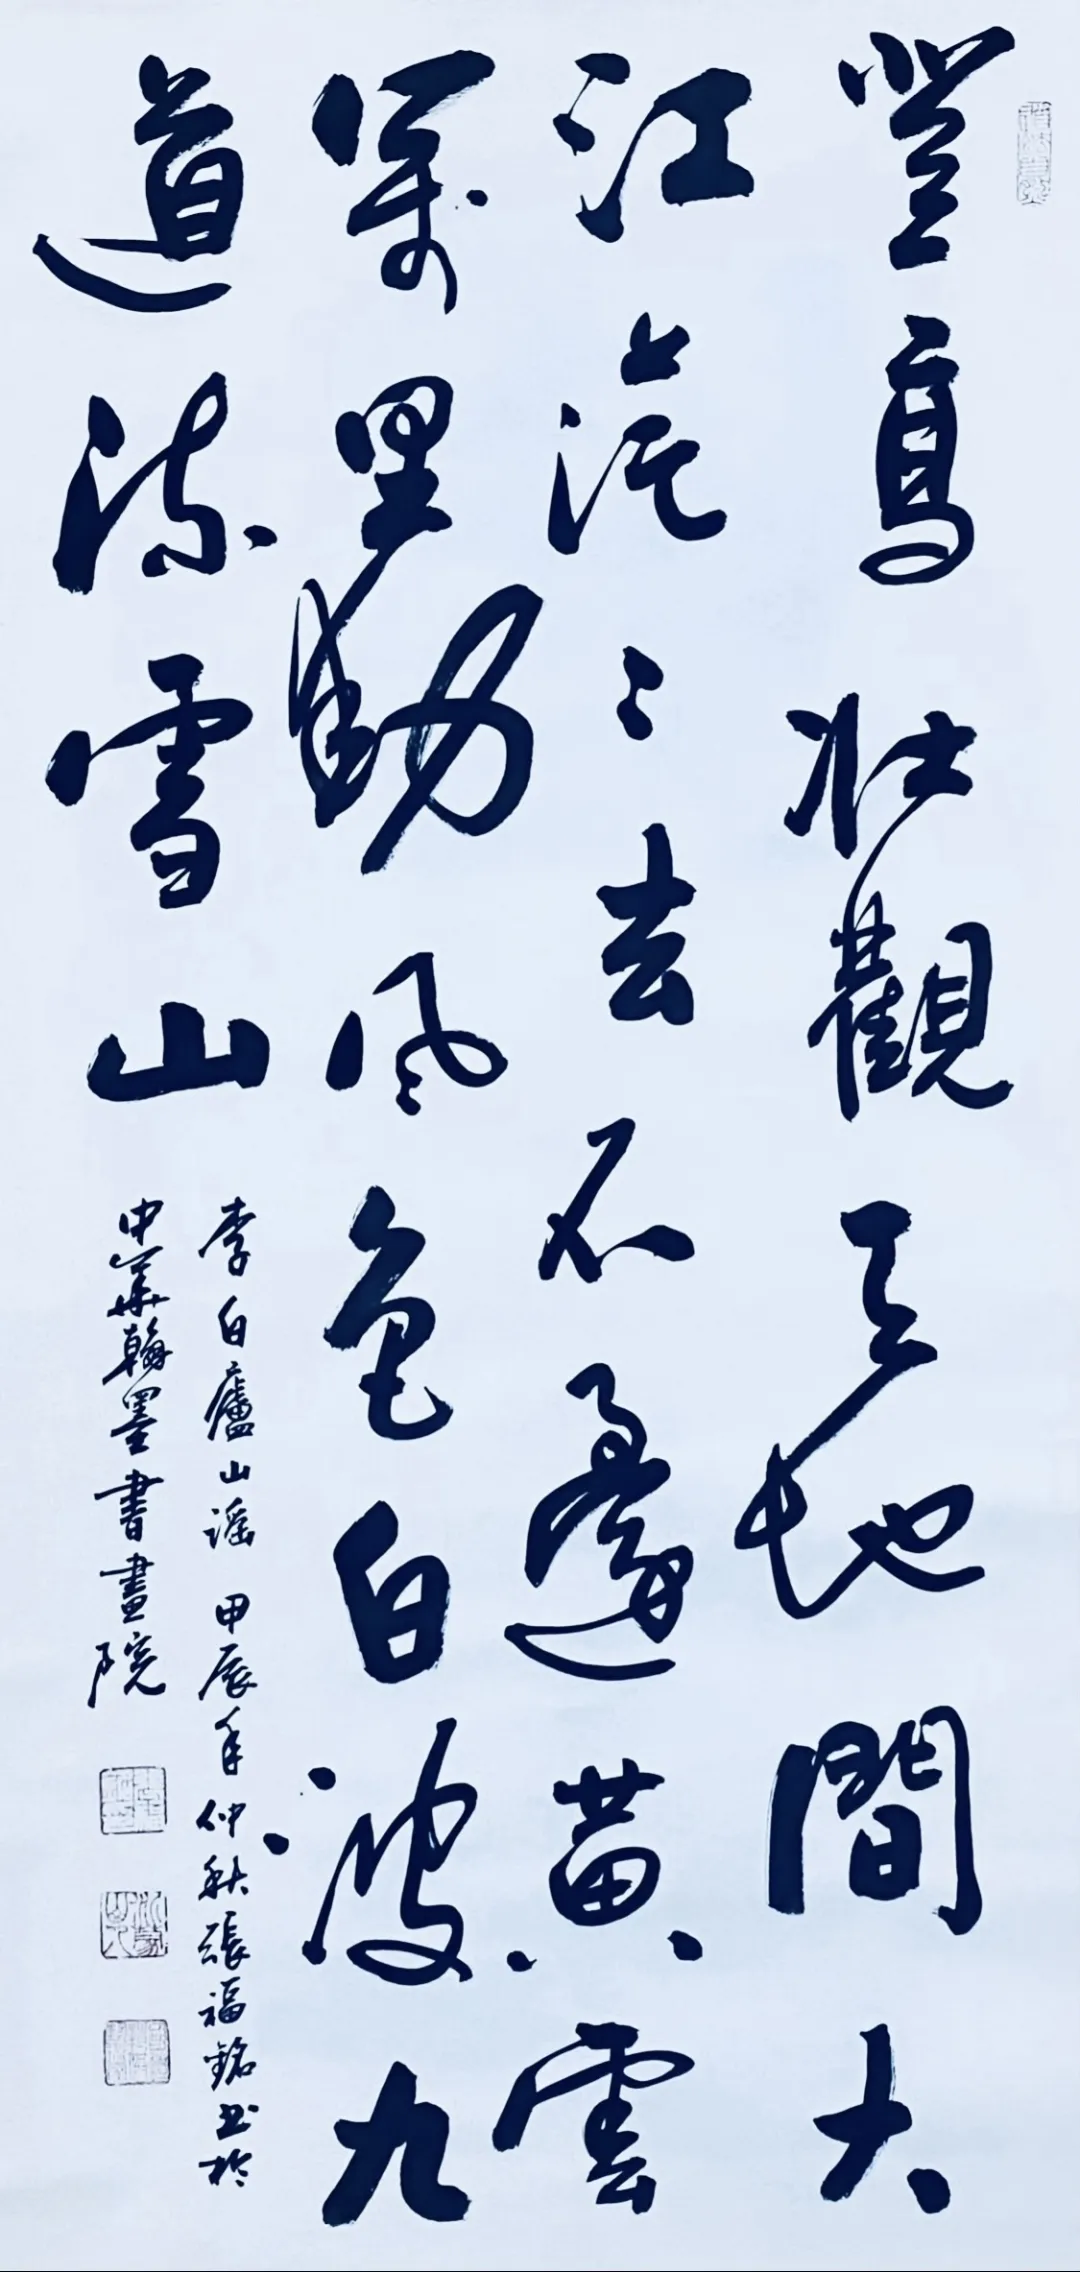 登高壯觀天地間大
江茫〻去不還黃雲
萬里動風色白波九
道流雪山
李白廬山謡 甲辰年仲秋張福銘书於
中華翰墨書畫院